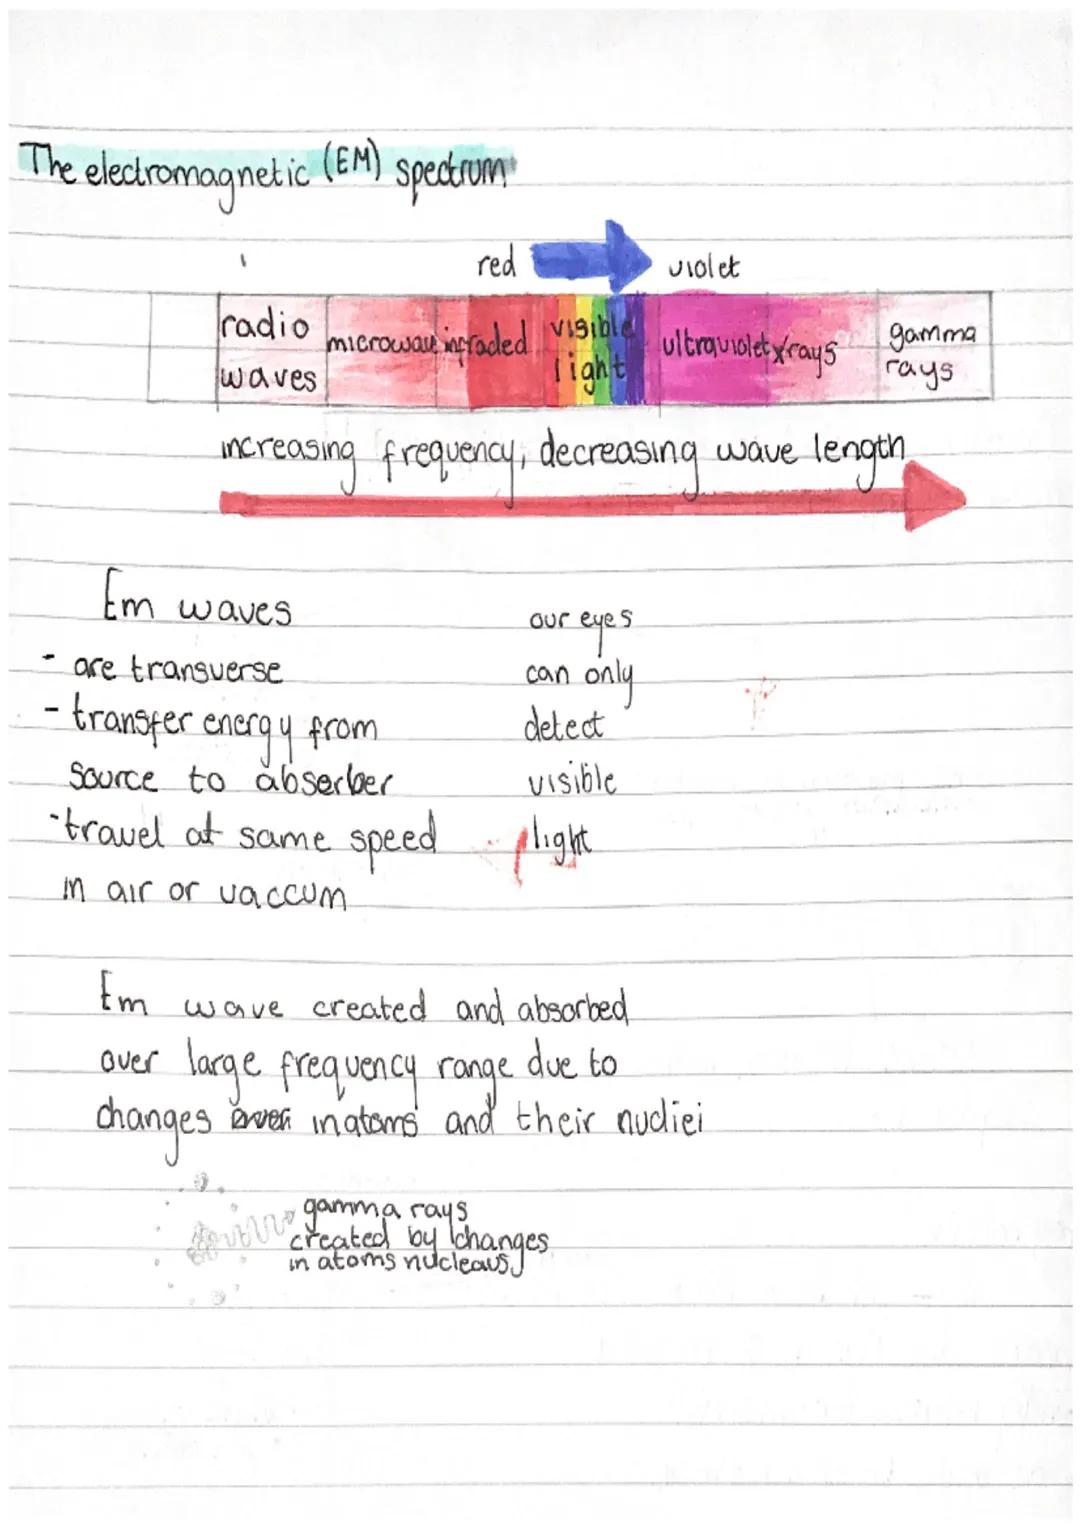 The electromagnetic (EM) spectrum
red violet
radio waves microwave infraded visible light ultraviolet x rays gamma rays
increasing frequency, decreasing wave length
Em waves
- are transverse
- transfer energy from
source to abserber
- travel at same speed
in air or vaccum
our eyes
can only
detect
visible
light
Em wave created and absorbed
over large frequency range due to
changes in atoms and their nucliei
gamma rays
created by changes
in atoms nucleaus